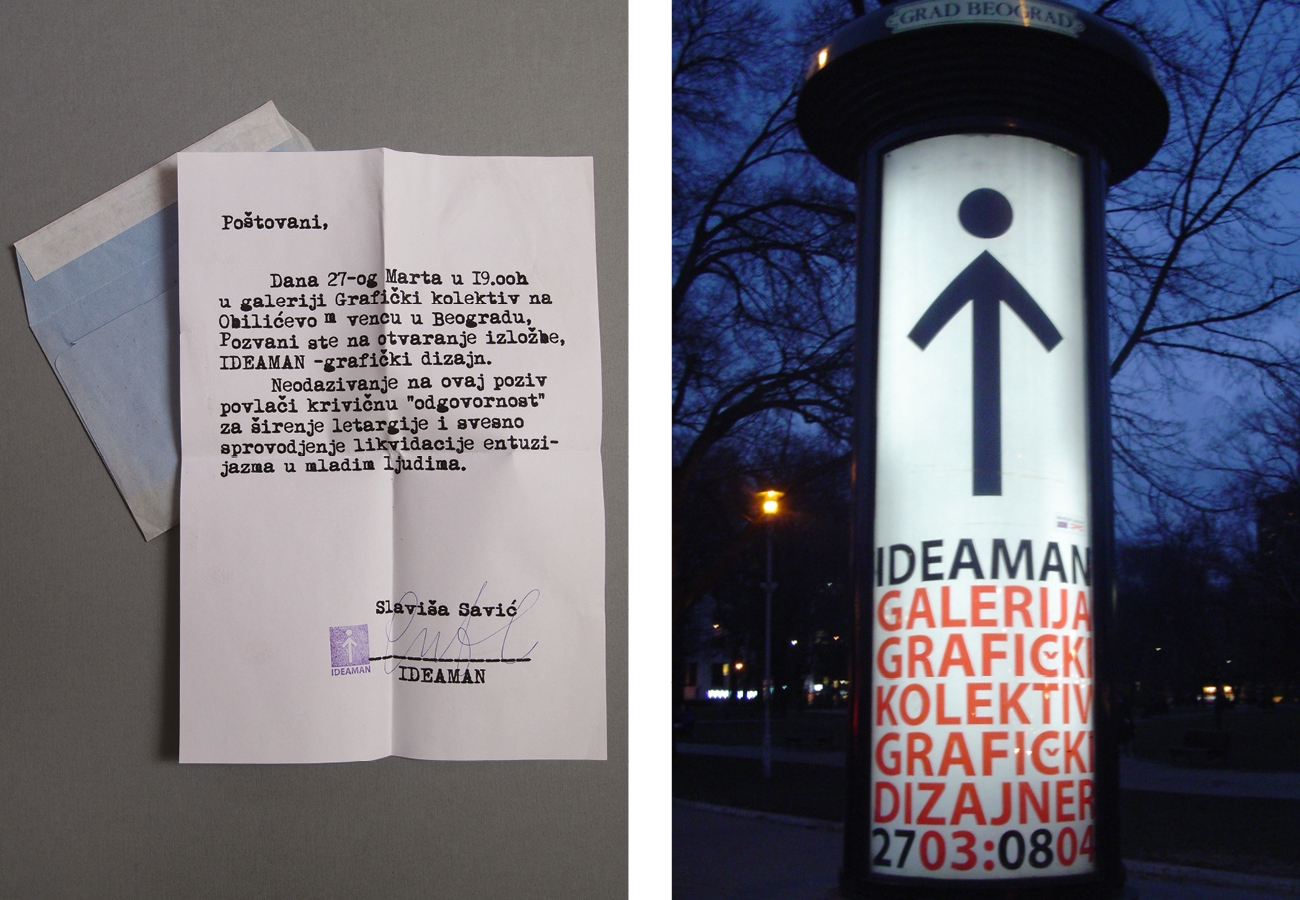 Poštovani,
Dana 27-og Marta u I9.ooh
u galeriji Grafički kolektiv na
Obilićevo m vencu u Beogradu,
Pozvani ste na otvaranje izložbe,
IDEAMAN -grafički dizajn.
Neodazivanje na ovaj poziv
povlači krivičnu "odgovornost"
za širenje letargije i svesno
sprovodjenje likvidacije entuzi-
jazma u mladim ljudima.
Slaviša Savić
IDEAMAN
IDEAMAN
GRAD BEOGRAD
IDEAMAN
GALERIJA
GRAFIČKI
KOLEKTIV
GRAFIČKI
DIZAJNER
2703:0804